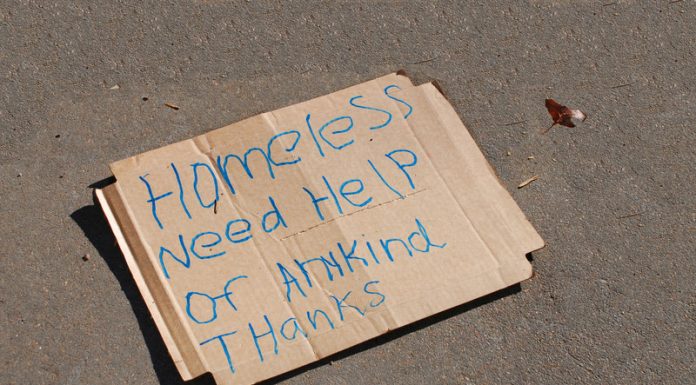 Homeless
Need Help
OF ANYKIND
THanks